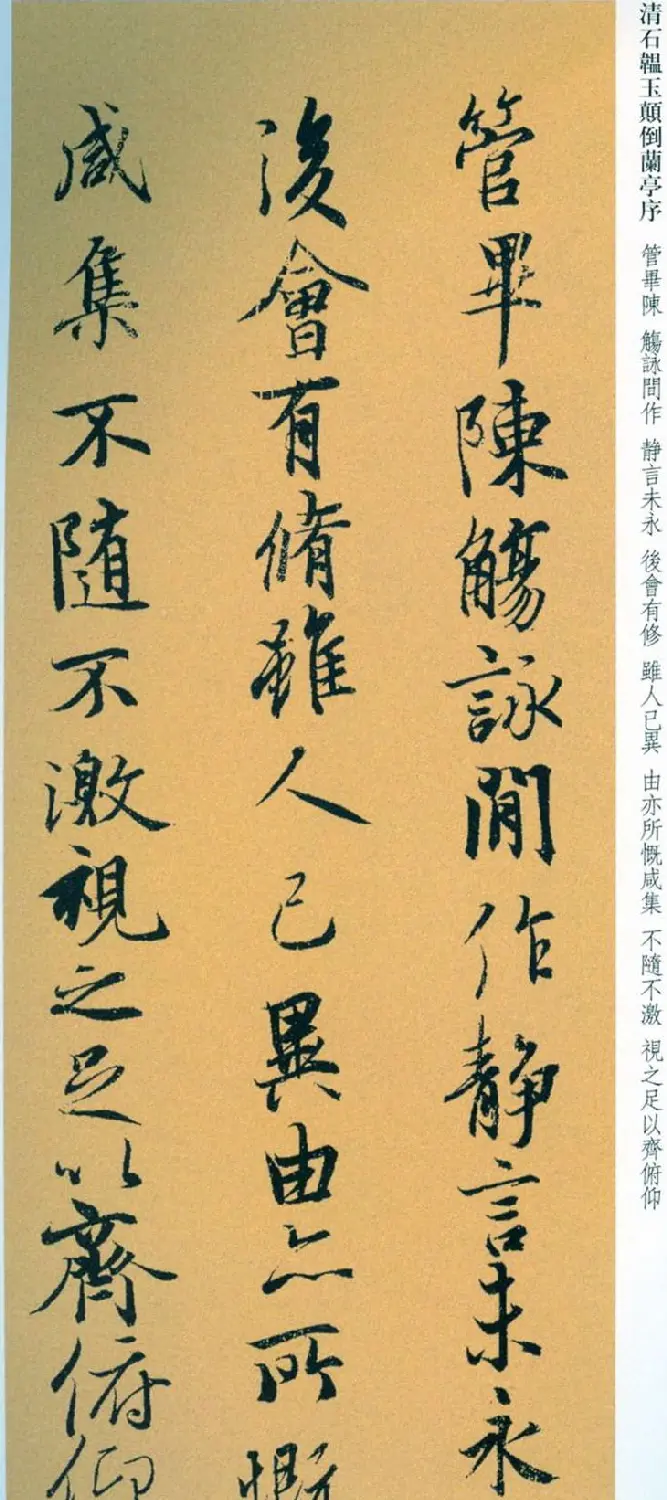 清石韞玉顛倒蘭亭序 管畢陳 觴詠間作 静言未永 後會有修 雖人已異 由亦所慨咸集 不隨不激 視之足以齊俯仰
管畢陳觴詠閒作静言未永
後會有脩雖人已異由亦所慨
咸集不随不激視之足以齊俯仰